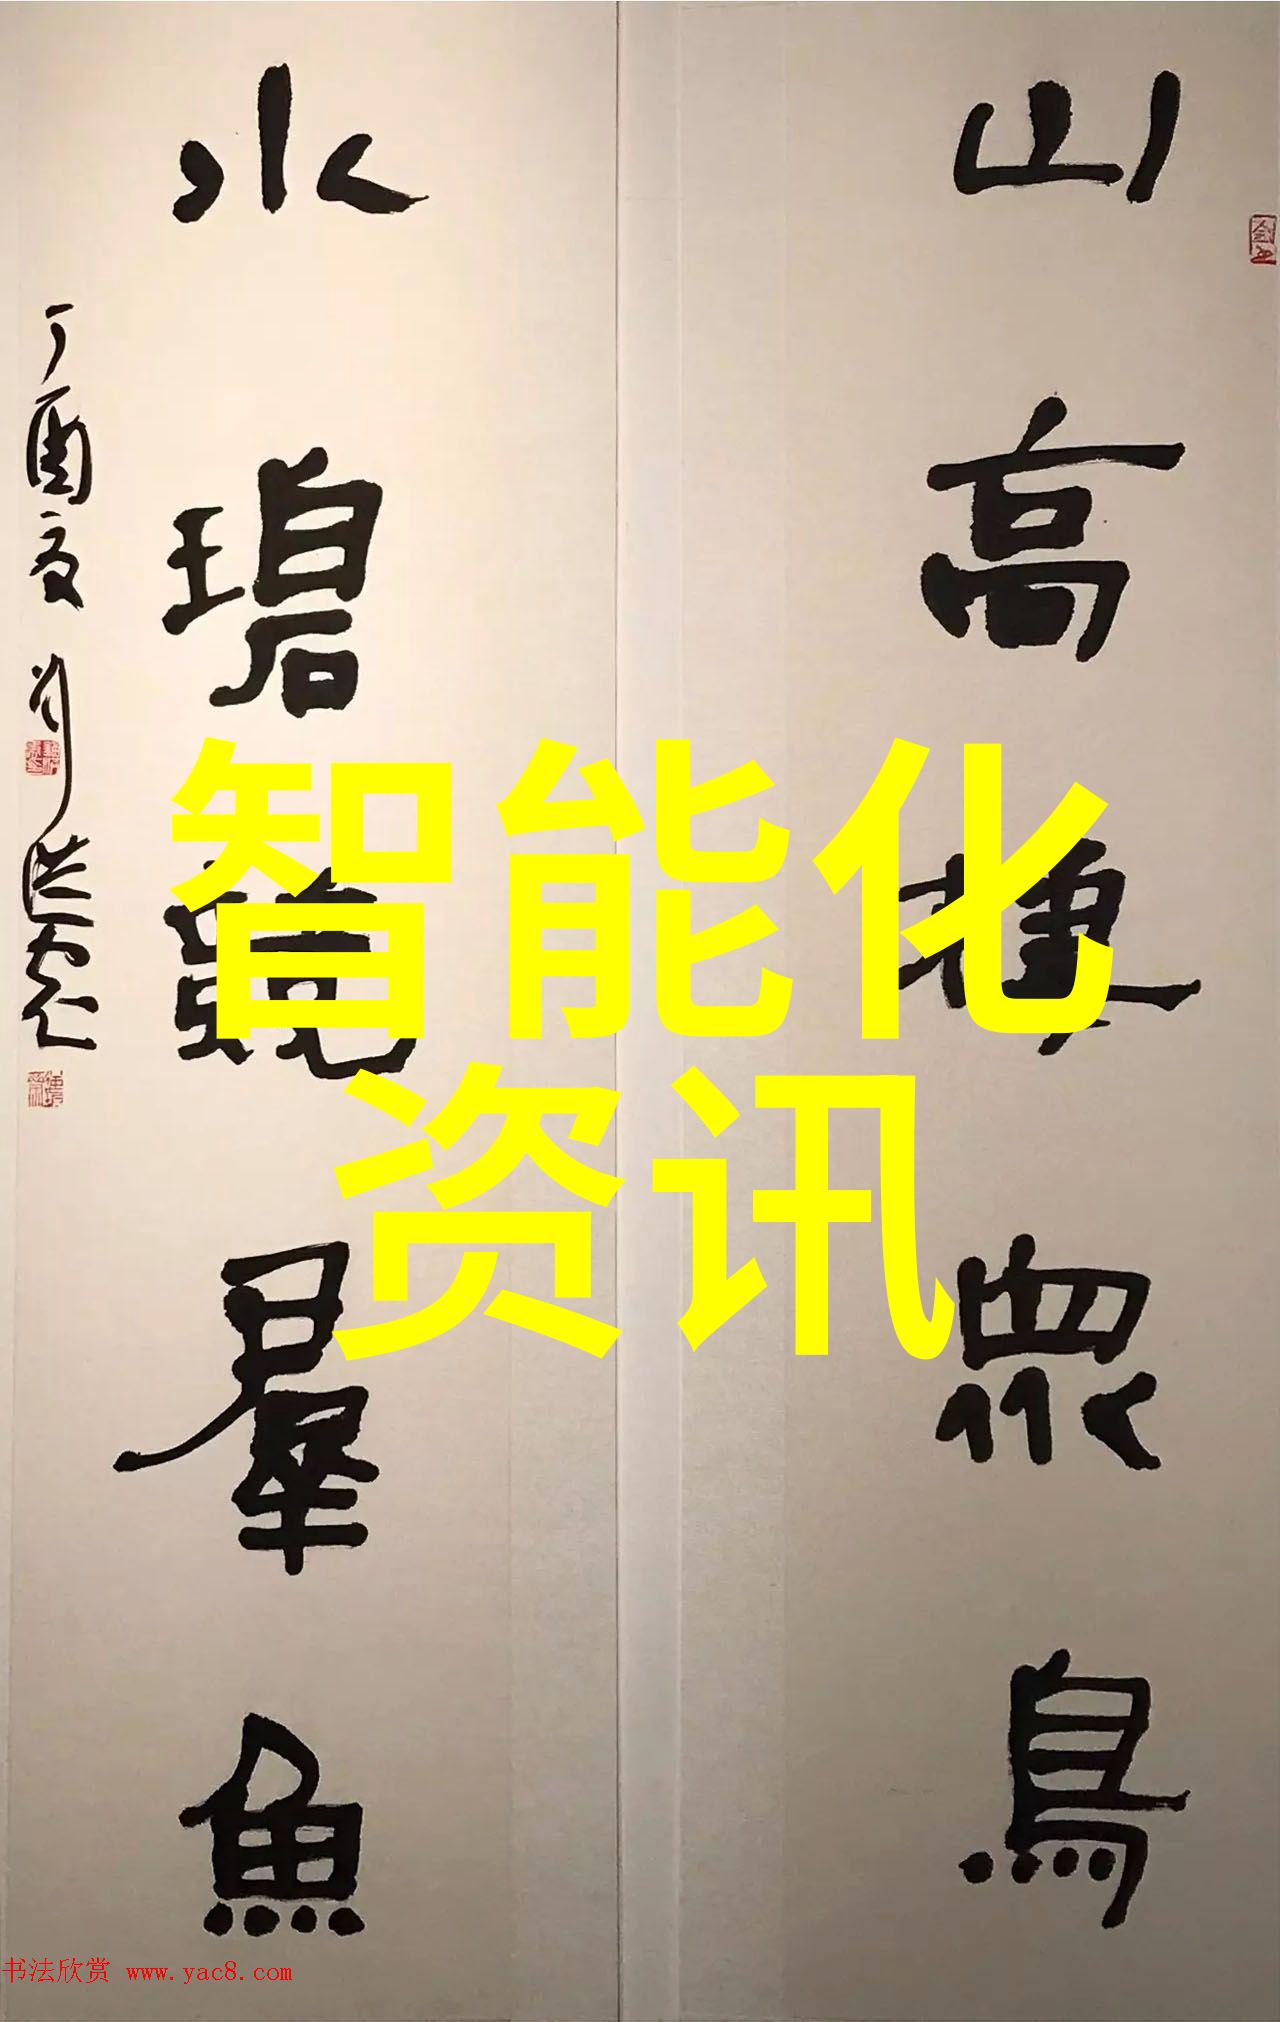 山高棲眾鳥
水碧競羣魚
丁酉夏 刘洪彪
智能化
资讯
书法欣赏 www.yac8.com